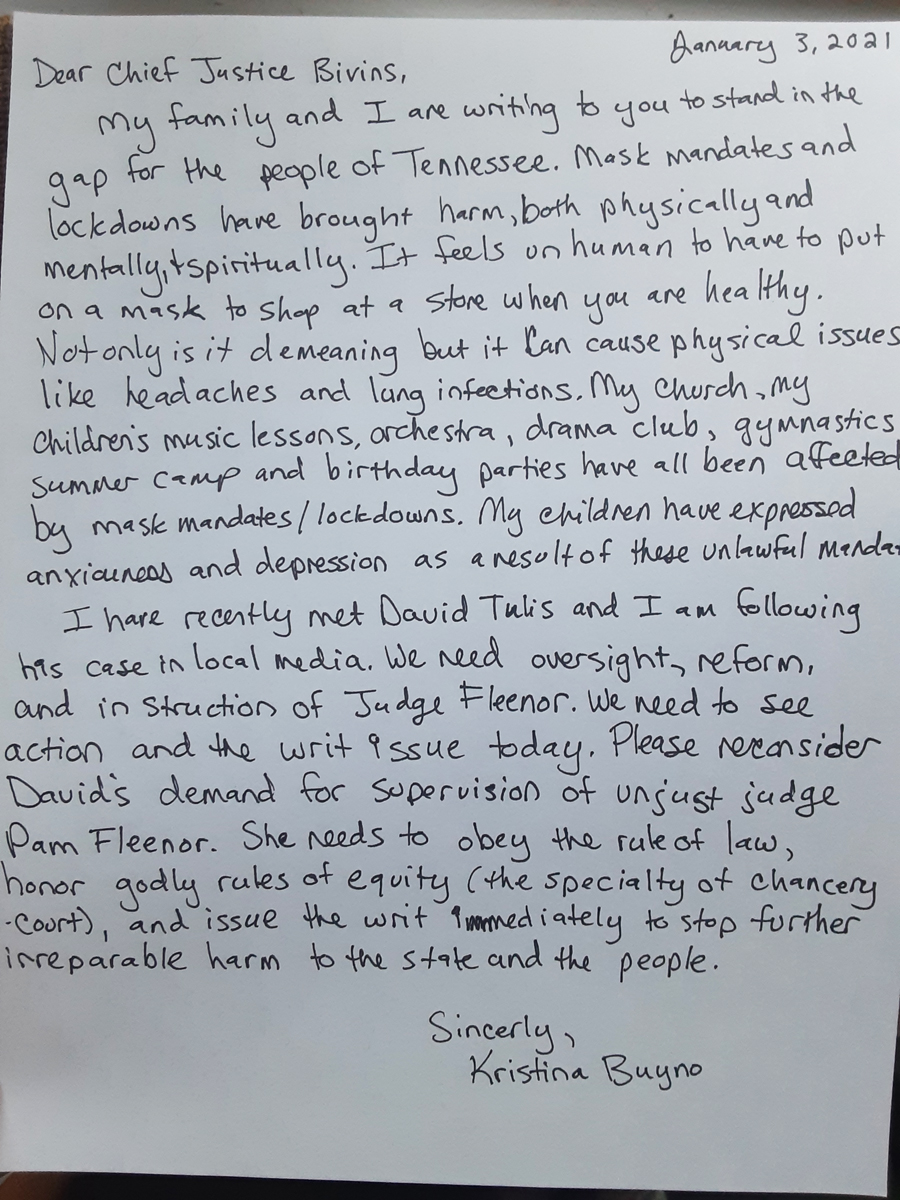 January 3, 2021
Dear Chief Justice Bivins,
My family and I are writing to you to stand in the
gap for the people of Tennessee. Mask mandates and
lockdowns have brought harm, both physically and
mentally, + spiritually. It feels unhuman to have to put
on a mask to shop at a store when you are healthy.
Not only is it demeaning but it Can cause physical issues
like headaches and lung infections. My Church, my
Children's music lessons, orchestra, drama club, gymnastics
summer camp and birthday parties have all been affected
by mask mandates/lockdowns. My children have expressed
anxiouness and depression as a result of these unlawful manda
I have recently met David Tulis and I am following
his case in local media. We need oversight, reform,
and instruction of Judge Fleenor. We need to see
action and the writ issue today. Please reconsider
David's demand for supervision of unjust judge
Pam Fleenor. She needs to obey the rule of law,
honor godly rules of equity (the specialty of chancery
-Court), and issue the writ immediately to stop further
irreparable harm to the state and the people.
Sincerly,
Kristina Buyno